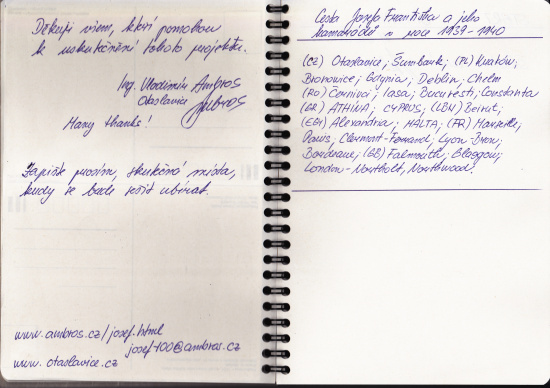 Děkuji všem, kteří pomohou
k uskutečnění tohoto projektu.
Ing. Vladimír Ambros
Otaslavice
Ambros
Many thanks!
Zapište prosím, skutečná místa,
kudy se bude sešit ubírat.
www.ambros.cz/josef.html
josef100@ambros.cz
www.otaslavice.cz
Cesta Josefa Františka a jeho
kamarádů v roce 1939-1940
(CZ) Otaslavice; Šumbark; (PL) Kraków;
Bronowice; Gdynia; Deblin; Chelm
(RO) Cernivci; Iasa; Bucuresti; Constanta
(GR) ATHÍNA; CYPROS; (LBN) Beirut;
(EGY) Alexandria; MALTA; (FR) Marseille;
Paris, Clermont-Ferrand; Lyon-Bron;
Bordeaux; (GB) Falmouth; Glasgow;
London-Northolt, Northwood.